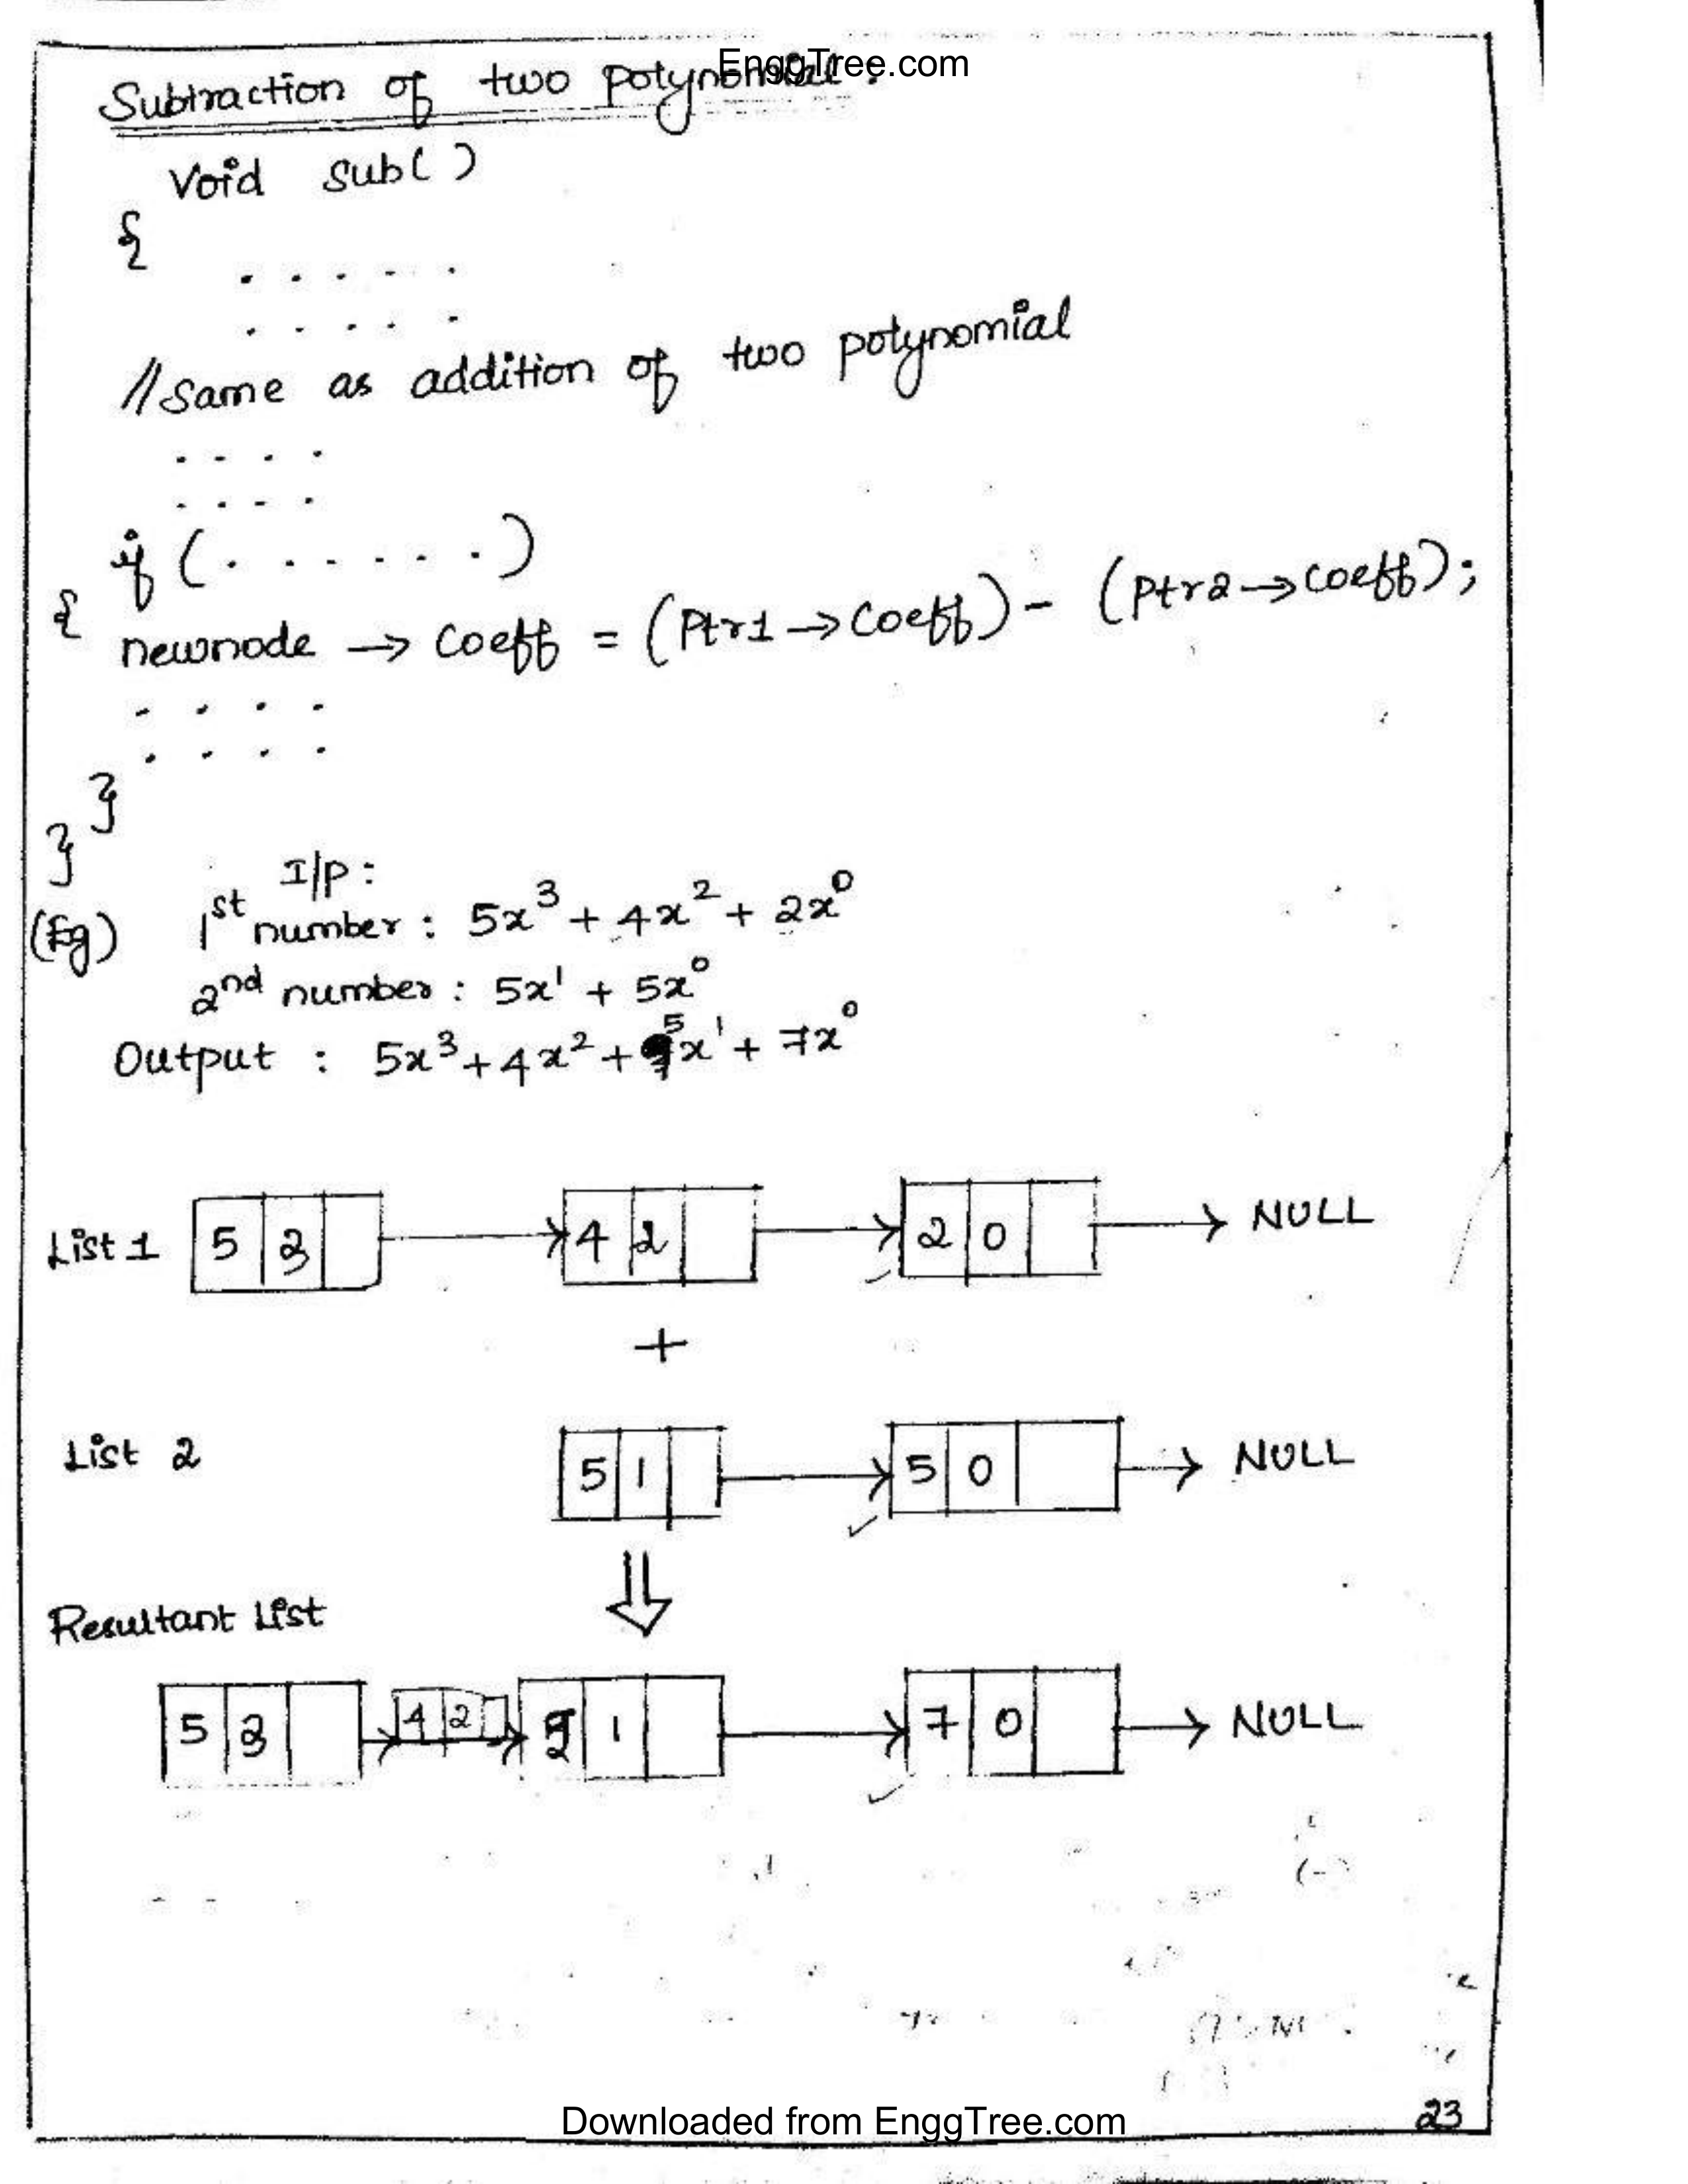 EnggTree.com
Subtraction of two polynomial :
Void Sub( )
{
. . . . .
. . . . .
//Same as addition of two polynomial
. . . .
. . . .
if ( . . . . . . )
{ newnode → Coeff = (Ptr1 → Coeff) - (Ptr2 → Coeff);
. . . .
. . . .
}
}
I/P :
(Eg) 1st number : 5x³ + 4x² + 2x⁰
2nd number : 5x¹ + 5x⁰
Output : 5x³ + 4x² + 5x¹ + 7x⁰
List 1 5 3 → 4 2 → 2 0 → NULL
+
List 2 5 1 → 5 0 → NULL
⇓
Resultant List
5 3 → 4 2 → 1 → 7 0 → NULL
Downloaded from EnggTree.com
23